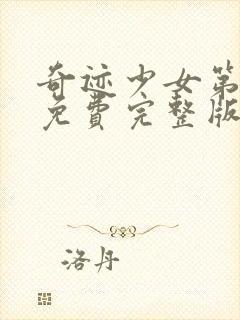 奇迹少女第
免费完整版
洛丹